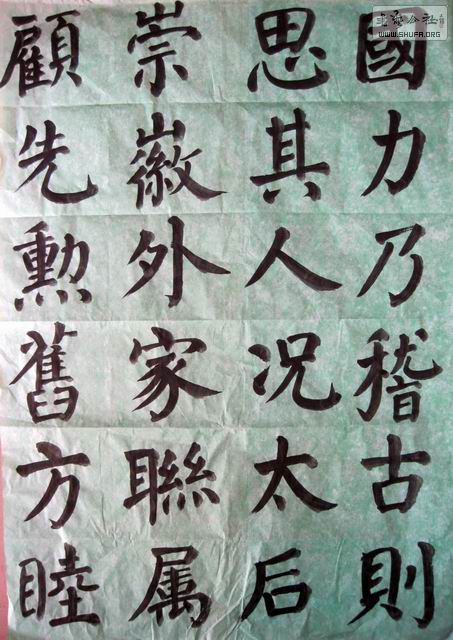 國力乃稽古則
思其人況太后
崇徽外家聯属
顧先勲舊方睦
WWW.SHUFA.ORG